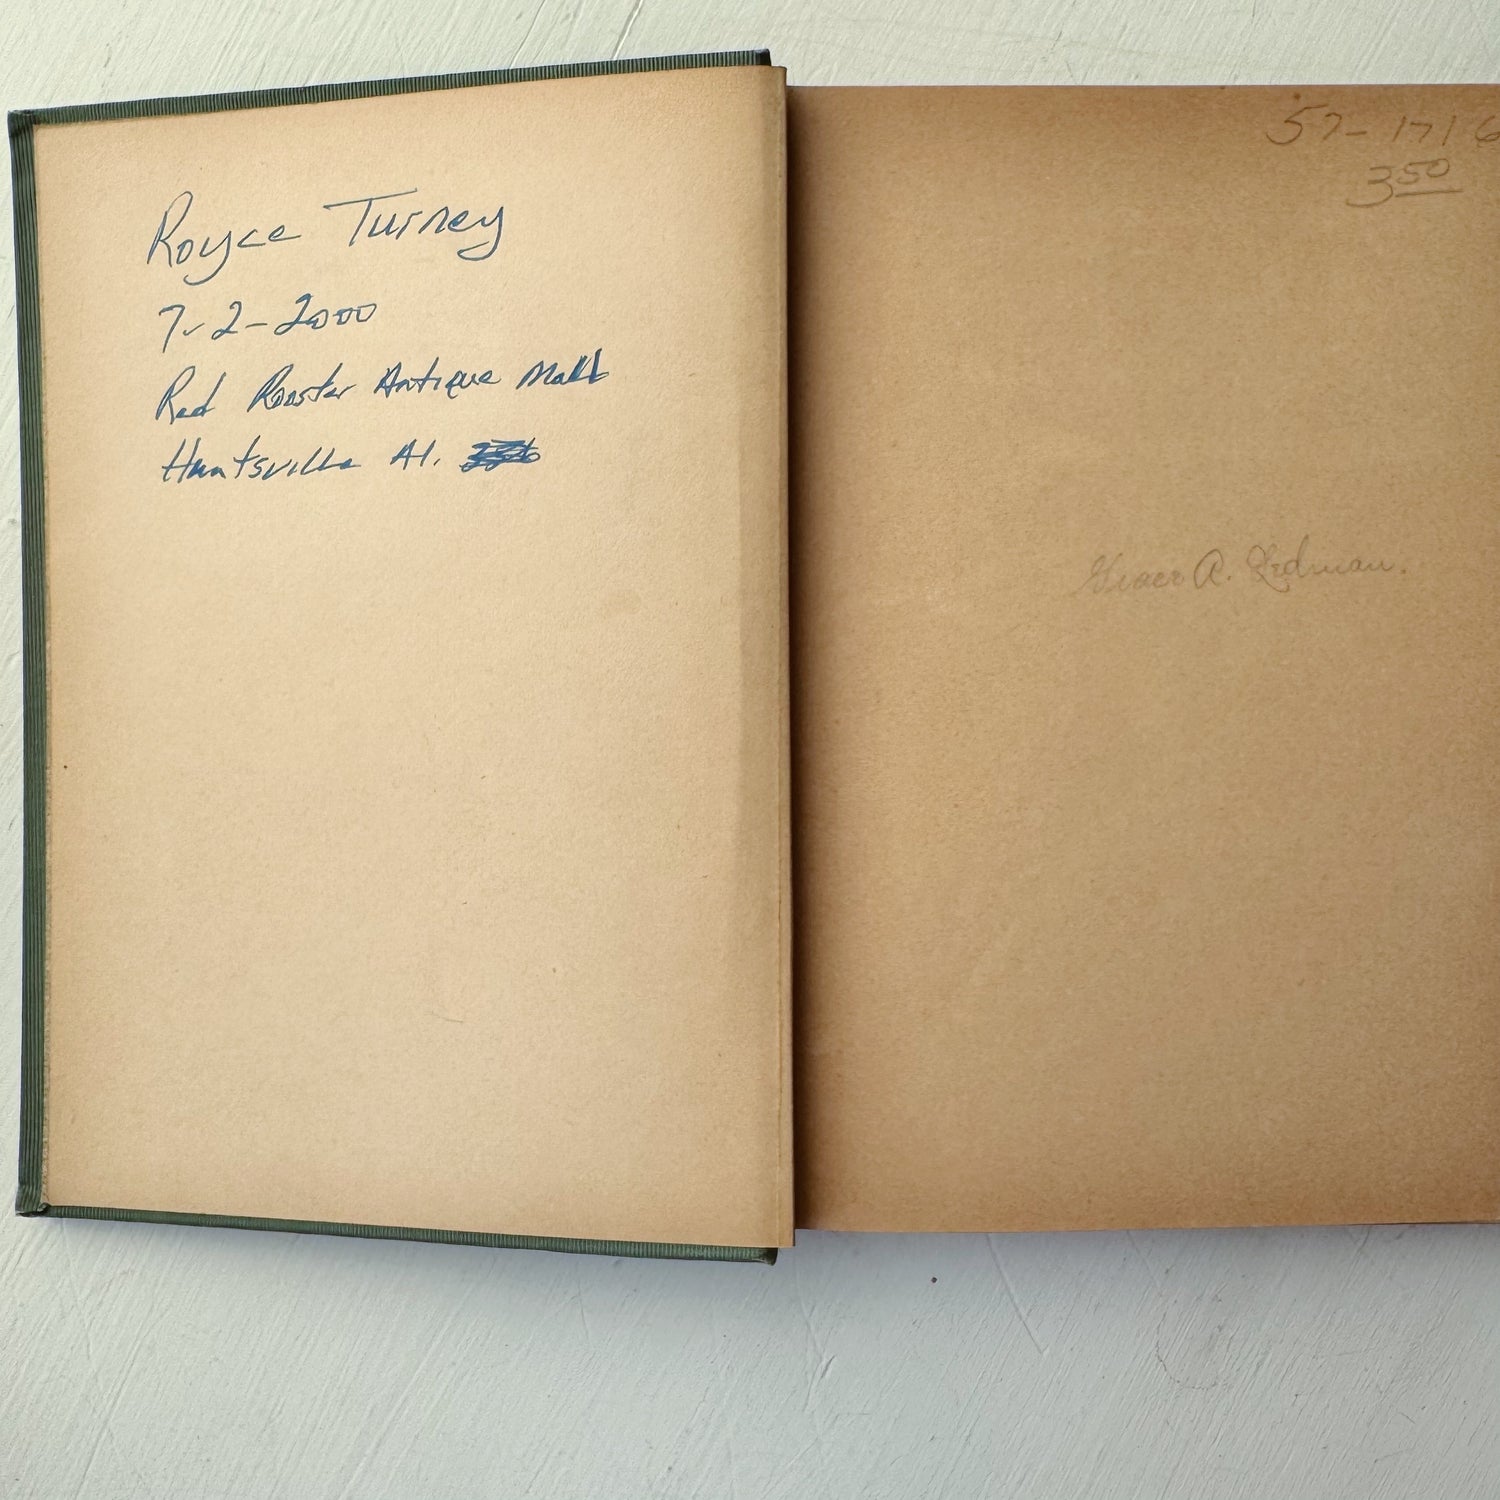 Royce Turney
7-2-2000
Red Rooster Antique Mall
Huntsville Al.
57-1716
3 50
Grace A.